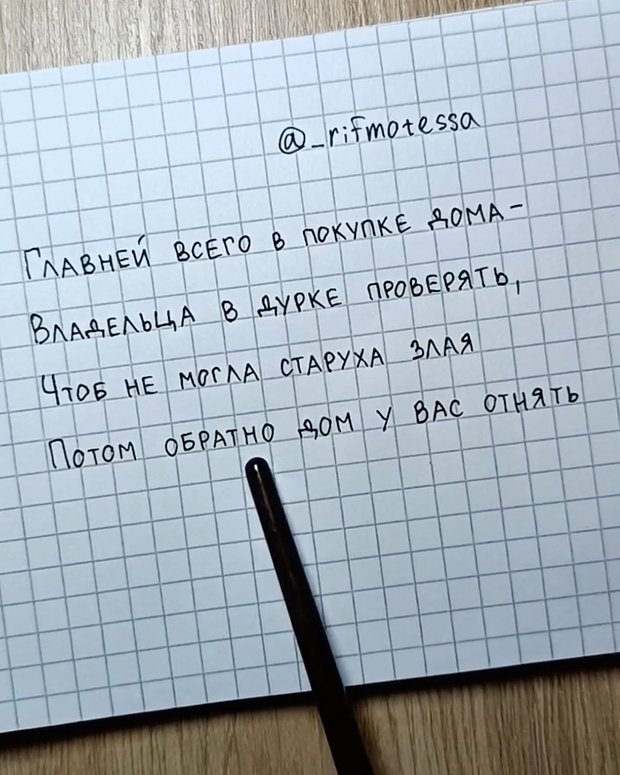 @_rifmotessa
Главней всего в покупке дома-
Владельца в дурке проверять,
Чтоб не могла старуха злая
Потом обратно дом у вас отнять